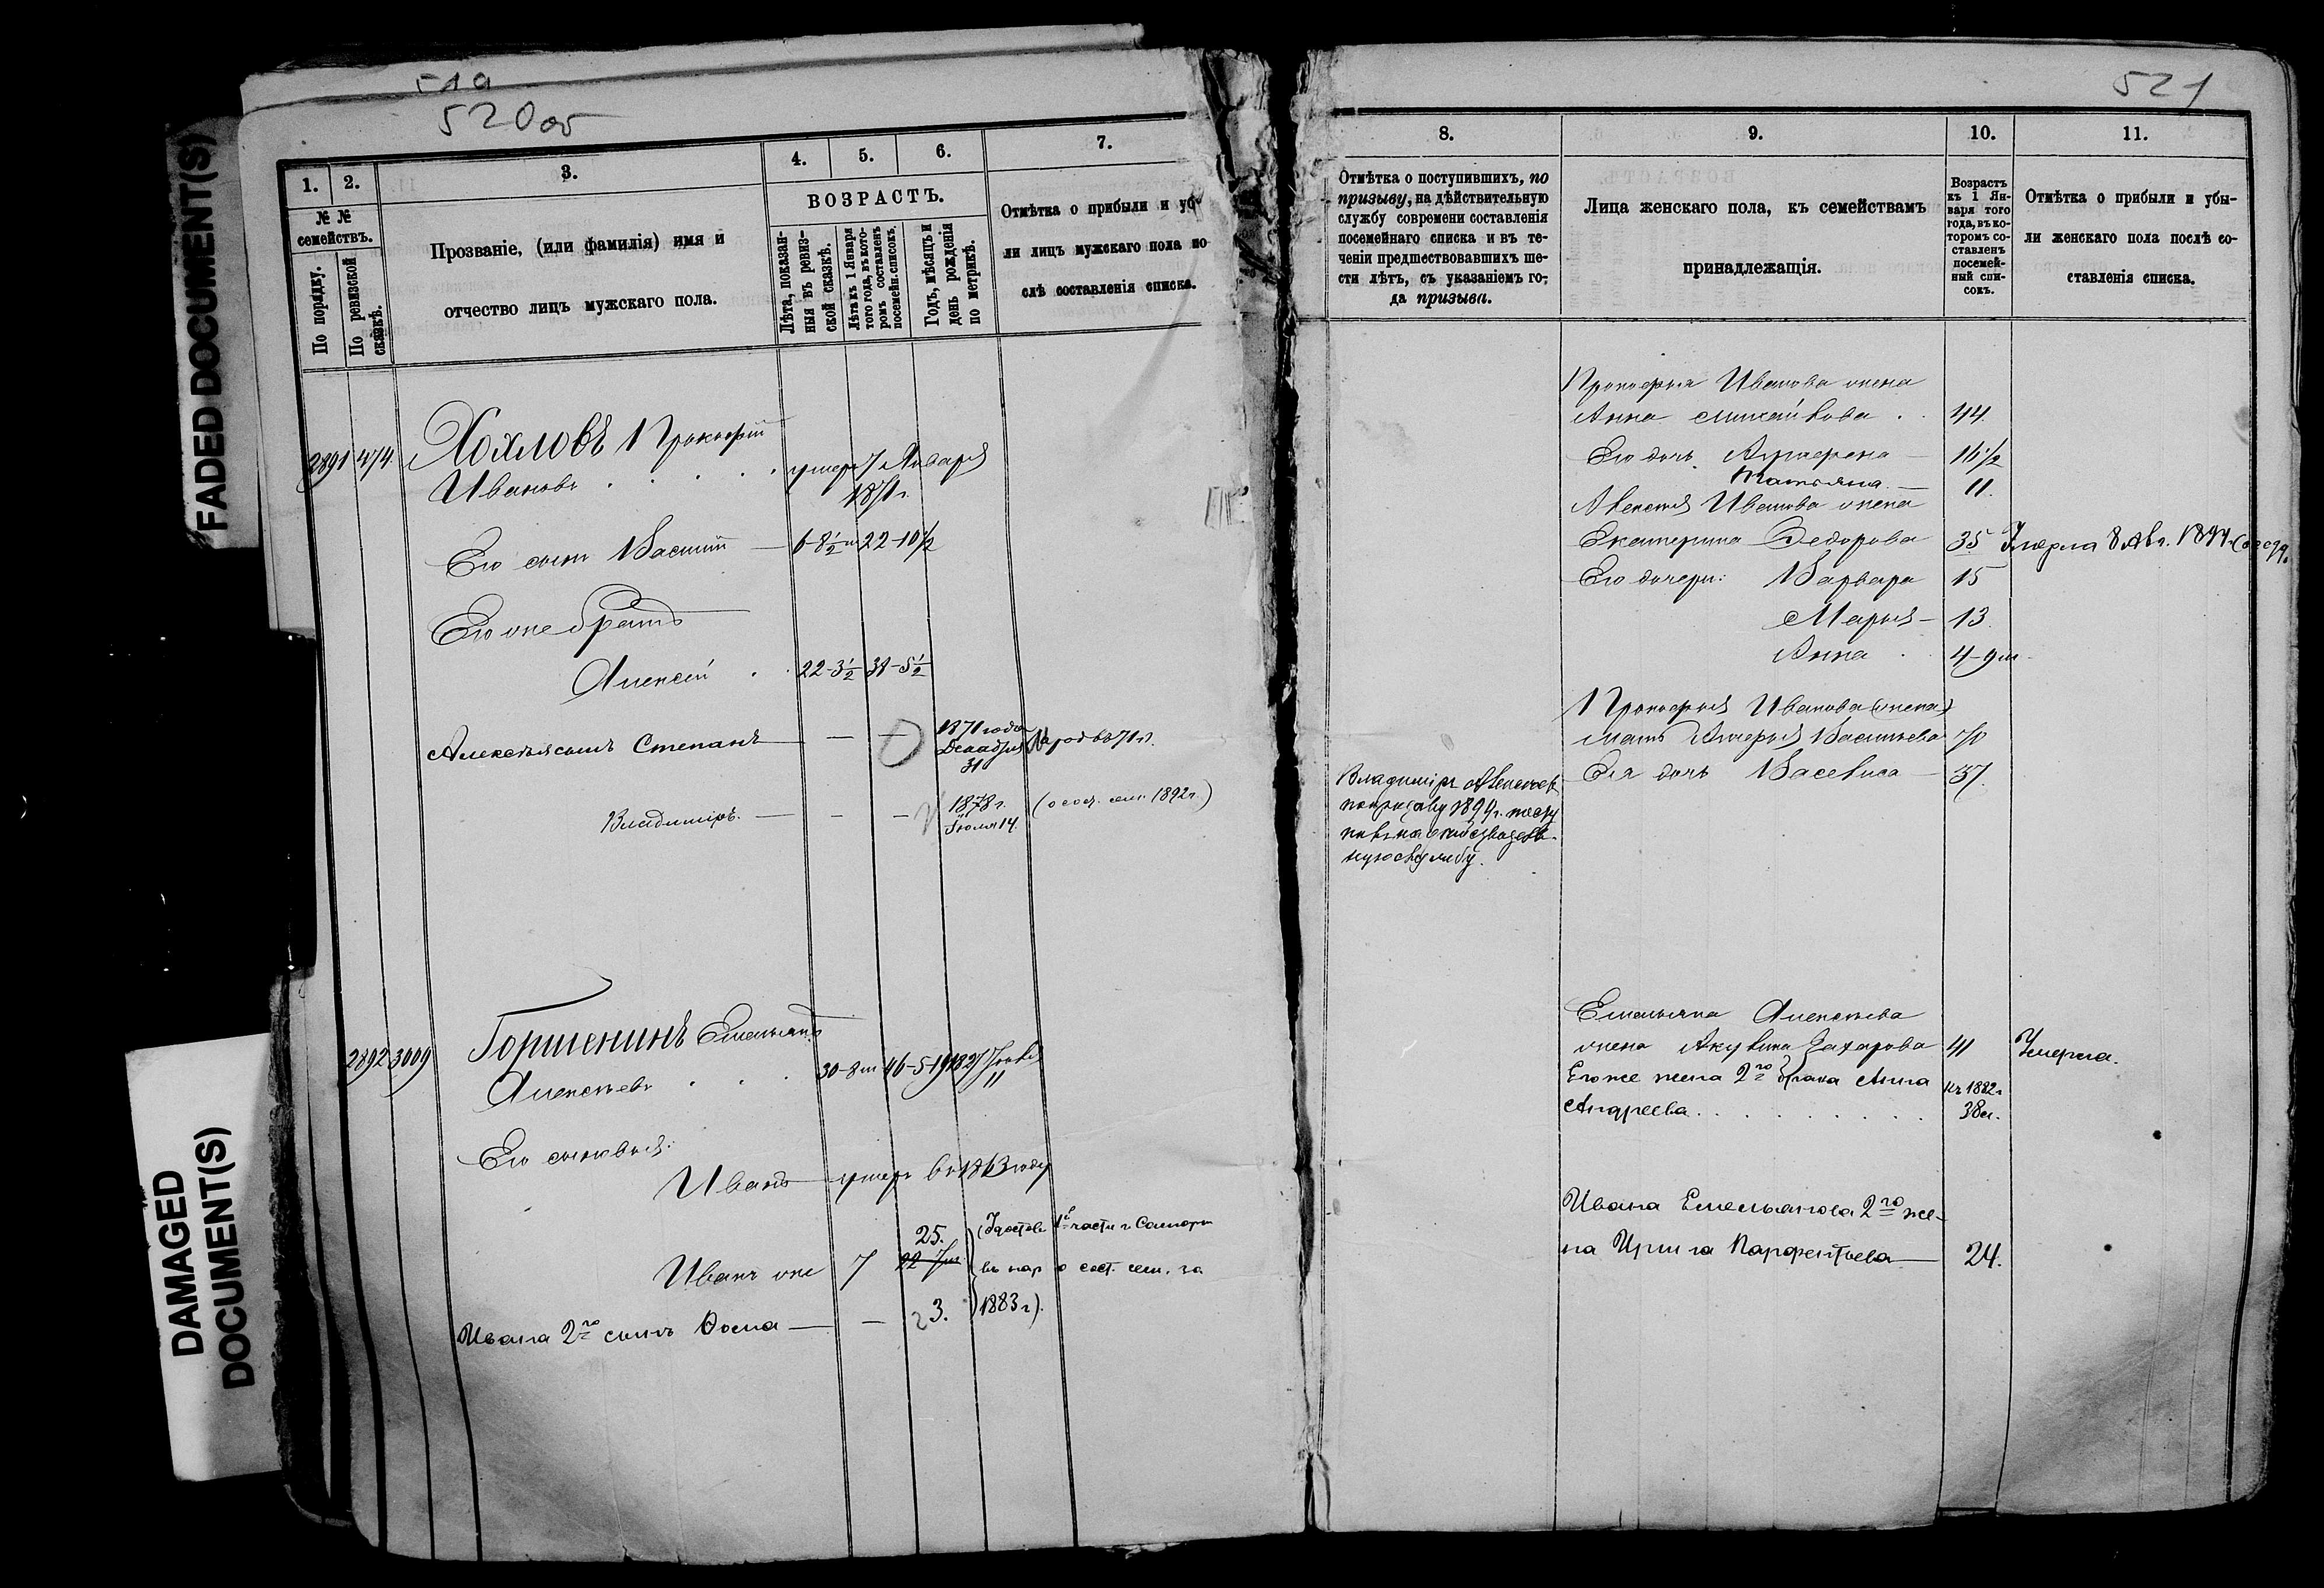 FADED DOCUMENT(S)
DAMAGED
DOCUMENT(S)
520об
1.
2.
3.
4.
5.
6.
7.
№ №
семействъ.
По порядку.
По ревизской
сказкѣ.
Прозваніе, (или фамилія) имя и
отчество лицъ мужскаго пола.
ВОЗРАСТЪ.
Лѣта, показан-
ныя въ ревиз-
ской сказкѣ.
Лѣта къ 1 Января
того года, въ кото-
ромъ составленъ
посемейн. списокъ.
Годъ, мѣсяцъ и
день рожденія
по метрикѣ.
Отмѣтка о прибыли и уб-
ли лицъ мужскаго пола по
слѣ составленія списка.
2891 474 Хохловъ Прокофій
Ивановъ . . . . умеръ 7 Января
1871 г.
Его сынъ Василій — 6-8½ м 22-10½
Его же братъ
Алексѣй . . 22-3½ 31-5½
Алексѣя сынъ Степанъ — — — 1871 года
Декабря
31
род въ 71 г.
Владиміръ. — — — 1878 г.
Іюля 14.
(о сост. сем. 1892 г.)
2892 3009 Горшенинъ Емельянъ
Алексѣевъ . . . 30-8 м 46-5-19 1827 Іюля
11
Его сыновья:
Иванъ умеръ въ 1863 году
Иванъ же 7 22-7м. 25.
Ивана 2го сынъ Фома — — 3.
(Удостов. 1й части г. Самары
въ о сост. сем. за
1883 г).
521
8.
9.
10.
11.
Отмѣтка о поступившихъ, по
призыву, на дѣйствительную
службу современи составленія
посемейнаго списка и въ те-
ченіи предшествовавшихъ ше-
сти лѣтъ, съ указаніемъ го-
да призыва.
Лица женскаго пола, къ семействамъ
принадлежащія.
Возрастъ
къ 1 Ян-
варя того
года, въ ко-
торомъ со-
ставленъ
посемей-
ный спи-
сокъ.
Отмѣтка о прибыли и убы-
ли женскаго пола послѣ со-
ставленія списка.
Прокофья Иванова жена
Анна Михайлова . . 44.
Его дочь Аграфена — 16½
Татьяна — 11.
Алексѣя Иванова жена
Екатерина Федорова 35 Умерла 8 Авг. 1894
Его дочери: Варвара 15
Марья — 13.
Анна . . 4-9 м
Прокофья Иванова (жена)
мать Васильева 70
Ея дочь Васелиса — 37.
Владиміръ Алексѣевъ
по призыву 1899 г. посту
пилъ на
ную службу.
Емельяна Алексѣева
жена Акулина Захарова 41 Умерла.
Его же жена 2го брака Анна
Андреева . . . . . . . . къ 1882 г
38 л.
Ивана Емельянова 2го же-
на Ирина Парфентьева — 24.